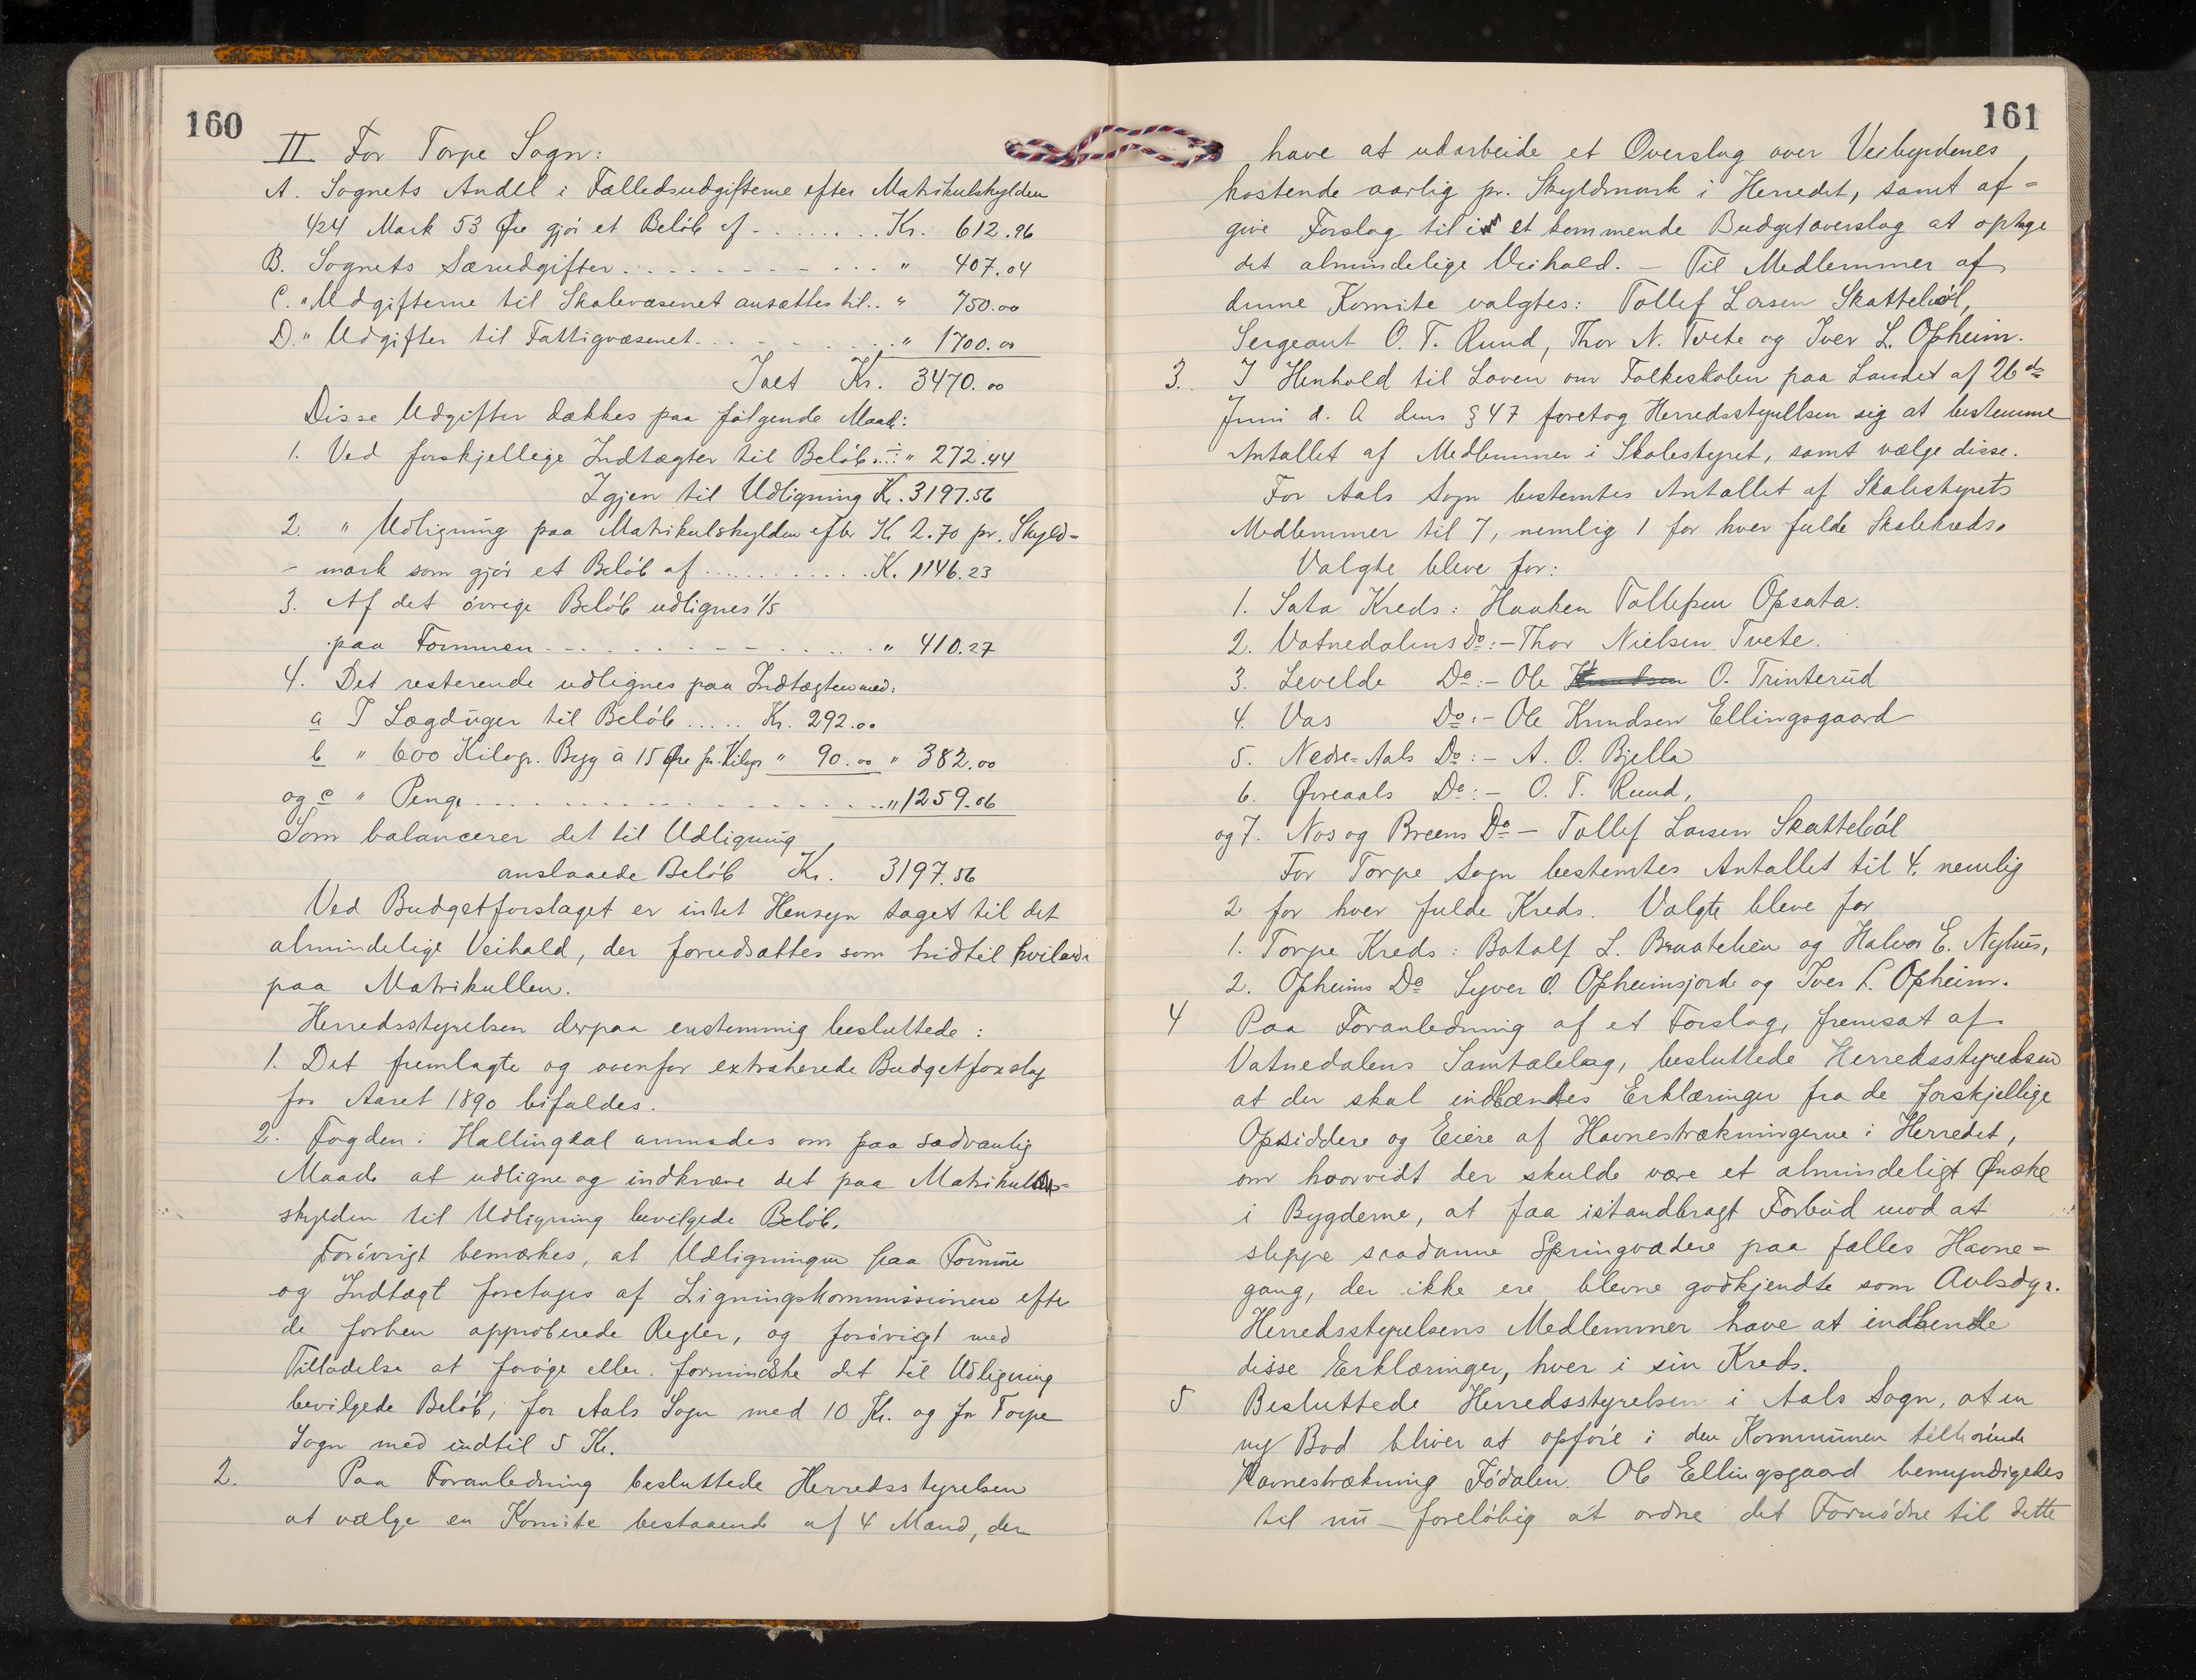 160
II For Torpe Sogn:
A. Sognets Andel i Fælledsudgifterne efter Matrikulskylden
424 Mark 53 Øre gjør et Beløb af ........ Kr. 612.96
B. Sognets Særudgifter ............ " 407.04
C. " Udgifterne til Skolevæsenet ansættes til .. " 750.00
D. " Udgifter til Fattigvæsenet ............ " 1700.00
Ialt Kr. 3470.00
Disse Udgifter dækkes paa følgende Maade:
1. Ved forskjellige Indtægter til Beløb ... " 272.44
Igjen til Udligning Kr. 3197.56
2. " Udligning paa Matrikulskylden efter Kr 2.70 pr. Skyld-
- mark som gjør et Beløb af ............ K. 1146.23
3. Af det øvrige Beløb udlignes 1/5
paa Formuen ............ " 410.27
4. Det resterende udlignes paa Indtægten med:
a I Lægdüger til Beløb ..... Kr. 292.00
b " 600 Kilogr. Byg à 15 Øre pr. Kilogr " 90.00 " 382.00
og c " Penge ............ " 1259.06
Som balancerer det til Udligning
anslaaede Beløb Kr. 3197.56
Ved Budgetforslaget er intet Hensyn taget til det
almindelige Veihald, der forudsættes som hidtil hvilende
paa Matrikullen.
Herredsstyrelsen derpaa enstemmig besluttede:
1. Det fremlagte og ovenfor extraherede Budgetforslag
for Aaret 1890 bifaldes.
2. Fogden i Hallingdal anmodes om paa sædvanlig
Maade at udligne og indkræve det paa Matrikul-
skylden til Udligning bevilgede Beløb.
Forøvrigt bemærkes, at Udligningen paa Formüe
og Indtægt foretages af Ligningskommissionere efter
de forhen approberede Regler, og forøvrigt med
Tilladelse at forøge eller formindske det til Udligning
bevilgede Beløb, for Aals Sogn med 10 Kr. og for Torpe
Sogn med indtil 5 Kr.
2. Paa Foranledning besluttede Herredsstyrelsen
at vælge en Komite bestaaende af 4 Mænd, der
161
have at udarbeide et Overslag over Veibyrdenes
kostende aarlig pr. Skyldmark i Herredet, samt af-
give Forslag til i et kommende Budgetoverslag at optage
det almindelige Veihold. - Til Medlemmer af
denne Komite valgtes: Tollef Larsen Skattebøl,
Sergeant O. T. Ruud, Thor N. Tvete og Iver L. Opheim.
3. I Henhold til Loven om Folkeskolen paa Landet af 26de
Juni d. A dens § 47 foretog Herredsstyrelsen sig at bestemme
Antallet af Medlemmer i Skolestyret, samt vælge disse.
For Aals Sogn bestemtes Antallet af Skolestyrets
Medlemmer til 7, nemlig 1 for hver fulde Skolekreds.
Valgte bleve for:
1. Sata Kreds: Haaken Tollefsen Opsata.
2. Votnedalens Do: - Thor Nielsen Tvete.
3. Levelde Do: - Ole Knudsen O. Trinterud
4. Vas Do: - Ole Knudsen Ellingsgaard
5. Nedre-Aals Do: - A. O. Bjella
6. Øvreaals Do: - O. T. Ruud,
og 7. Nos og Breens Do - Tollef Larsen Skattebøl
For Torpe Sogn bestemtes Antallet til 4, nemlig
2 for hver fulde Kreds. Valgte bleve for
1. Torpe Kreds: Botolf L. Braatelien og Halvor E. Nyhüs,
2. Opheims Do Syver O. Opheimsjorde og Iver L. Opheim.
4 Paa Foranledning af et Forslag, fremsat af
Votnedalens Samtalelag, besluttede Herredsstyrelsen
at der skal indhændtes Erklæringer fra de forskjellige
Opsiddere og Eiere af Havnestrækningerne i Herredet,
om hvorvidt der skulde være et almindeligt Ønske
i Bygderne, at faa istandbragt Forbud mod at
slippe saadanne Springvædere paa fælles Havne-
gang, der ikke ere blevne godkjendte som Avlsdyr.
Herredsstyrelsens Medlemmer have at indhente
disse Erklæringer, hver i sin Kreds.
5 Besluttede Herredsstyrelsen i Aals Sogn, at en
ny Bod bliver at opføre i den Kommunen tilhørende
Havnestrækning Fødalen. Ole Ellingsgaard bemyndigedes
til nü - foreløbig at ordne det Fornødne til dette